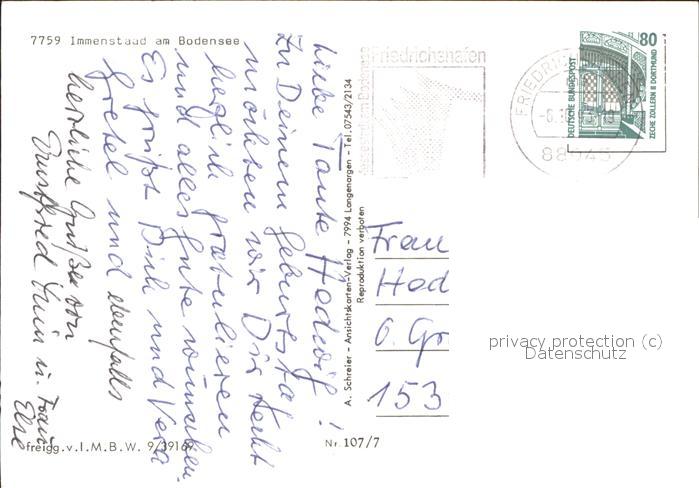 7759 Immenstaad am Bodensee
Liebe Tante Hedwig!
Zu Deinem Geburtstag
möchten wir Dir recht
herzlich gratulieren
und alles Gute wünschen.
Es grüßt Dich und Vera
Gretel und ebenfalls
herzliche Grüße von
u. Frau
Else
freigg.v.I.M.B.W. 9/39169
Nr. 107/7
A. Schreier - Ansichtskarten-Verlag - 7994 Langenargen - Tel. 07543/2134
Reproduktion verboten
Friedrichshafen
am Bodensee
FRIEDRICH
88045
80
DEUTSCHE BUNDESPOST
ZECHE ZOLLERN II DORTMUND
Frau
Hed
O. Gr
153
privacy protection (c)
Datenschutz